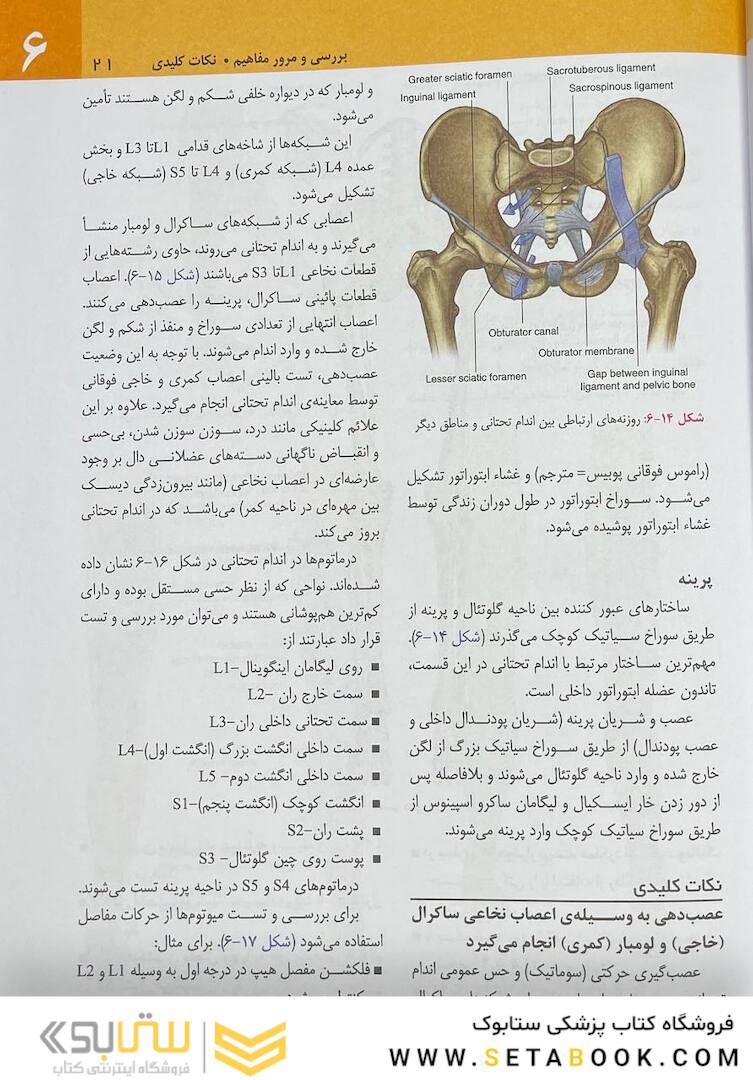 ۶
۲۱
بررسی و مرور مفاهیم • نکات کلیدی
Greater sciatic foramen
Inguinal ligament
Sacrotuberous ligament
Sacrospinous ligament
Obturator canal
Obturator membrane
Lesser sciatic foramen
Gap between inguinal
ligament and pelvic bone
شکل ۱۴-۶: روزنه‌های ارتباطی بین اندام تحتانی و مناطق دیگر
(راموس فوقانی پوبیس= مترجم) و غشاء ابتوراتور تشکیل
می‌شود. سوراخ ابتوراتور در طول دوران زندگی توسط
غشاء ابتوراتور پوشیده می‌شود.
پرینه
ساختارهای عبور کننده بین ناحیه گلوتئال و پرینه از
طریق سوراخ سیاتیک کوچک می‌گذرند (شکل ۱۴-۶).
مهم‌ترین ساختار مرتبط با اندام تحتانی در این قسمت،
تاندون عضله ابتوراتور داخلی است.
عصب و شریان پرینه (شریان پودندال داخلی و
عصب پودندال) از طریق سوراخ سیاتیک بزرگ از لگن
خارج شده و وارد ناحیه گلوتئال می‌شوند و بلافاصله پس
از دور زدن خار ایسکیال و لیگامان ساکرو اسپینوس از
طریق سوراخ سیاتیک کوچک وارد پرینه می‌شوند.
نکات کلیدی
عصب‌دهی به وسیله‌ی اعصاب نخاعی ساکرال
(خاجی) و لومبار (کمری) انجام می‌گیرد
عصب‌گیری حرکتی (سوماتیک) و حس عمومی اندام
و لومبار که در دیواره خلفی شکم و لگن هستند تأمین
می‌شود.
این شبکه‌ها از شاخه‌های قدامی L1تا L3 و بخش
عمده L4 (شبکه کمری) و L4 تا S5 (شبکه خاجی)
تشکیل می‌شود.
اعصابی که از شبکه‌های ساکرال و لومبار منشأ
می‌گیرند و به اندام تحتانی می‌روند، حاوی رشته‌هایی از
قطعات نخاعی L1تا S3 می‌باشند (شکل ۱۵-۶). اعصاب
قطعات پائینی ساکرال، پرینه را عصب‌دهی می‌کنند.
اعصاب انتهایی از تعدادی سوراخ و منفذ از شکم و لگن
خارج شده و وارد اندام می‌شوند. با توجه به این وضعیت
عصب‌دهی، تست بالینی اعصاب کمری و خاجی فوقانی
توسط معاینه‌ی اندام تحتانی انجام می‌گیرد. علاوه بر این
علائم کلینیکی مانند درد، سوزن سوزن شدن، بی‌حسی
و انقباض ناگهانی دسته‌های عضلانی دال بر وجود
عارضه‌ای در اعصاب نخاعی (مانند بیرون‌زدگی دیسک
بین مهره‌ای در ناحیه کمر) می‌باشد که در اندام تحتانی
بروز می‌کند.
درماتوم‌ها در اندام تحتانی در شکل ۱۶-۶ نشان داده
شده‌اند. نواحی که از نظر حسی مستقل بوده و دارای
کم‌ترین هم‌پوشانی هستند و می‌توان مورد بررسی و تست
قرار داد عبارتند از:
■ روی لیگامان اینگوینال-L1
■ سمت خارج ران -L2
■ سمت تحتانی داخلی ران-L3
■ سمت داخلی انگشت بزرگ (انگشت اول)-L4
■ سمت داخلی انگشت دوم- L5
■ انگشت کوچک (انگشت پنجم)-S1
■ پشت ران-S2
■ پوست روی چین گلوتئال- S3
درماتوم‌های S4 و S5 در ناحیه پرینه تست می‌شوند.
برای بررسی و تست میوتوم‌ها از حرکات مفاصل
استفاده می‌شود (شکل ۱۷-۶). برای مثال:
■ فلکشن مفصل هیپ در درجه اول به وسیله L1 و L2
ستابوک
فروشگاه اینترنتی کتاب
فروشگاه کتاب پزشکی ستابوک
WWW.SETABOOK.COM